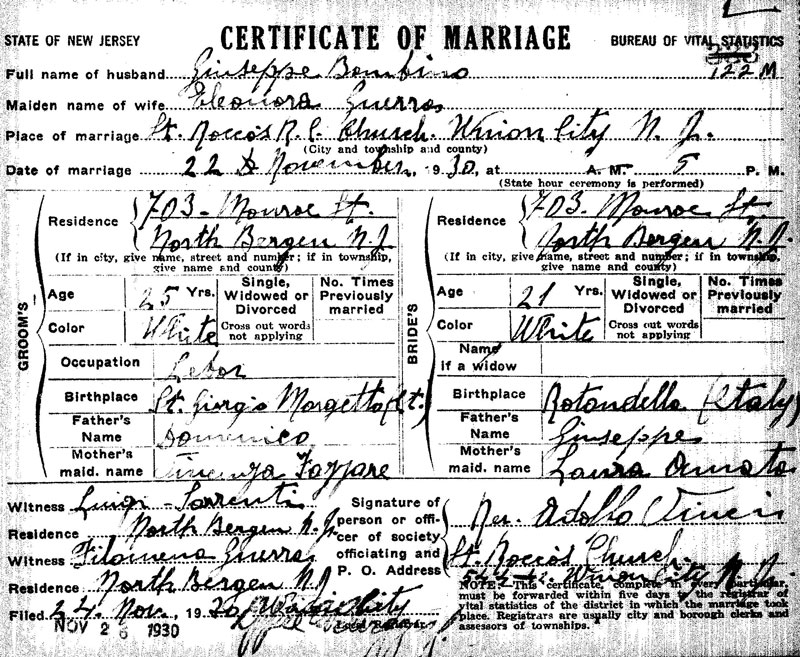 STATE OF NEW JERSEY CERTIFICATE OF MARRIAGE BUREAU OF VITAL STATISTICS
Full name of husband Giuseppe Bombino 122 M
Maiden name of wife Eleonora Guerra
Place of marriage St. Rocco's R. C. Church. Union City N. J.
(City and township and county)
Date of marriage 22 November, 1930, at A. M. 5 P. M.
(State hour ceremony is performed)
GROOM'S
Residence 703 - Monroe St.
North Bergen N.J.
(If in city, give name, street and number; if in township, give name and county)
Age 25 Yrs.
Single, Widowed or Divorced
Cross out words not applying
No. Times Previously married
Color White
Occupation Labor
Birthplace St. Giorgio Morgetto (It.)
Father's Name Domenico
Mother's maid. name Vincenza Fazzare
BRIDE'S
Residence 703. Monroe St.
North Bergen N. J.
(If in city, give name, street and number; if in township, give name and county)
Age 21 Yrs.
Single, Widowed or Divorced
Cross out words not applying
No. Times Previously married
Color White
Name if a widow
Birthplace Rotondella (Italy)
Father's Name Giuseppe
Mother's maid. name Laura Amato
Witness Luigi Sorrenti
Residence North Bergen N. J.
Witness Filomena Guerra
Residence North Bergen N J
Filed 24. Nov., 1930 Union City
NOV 26 1930
Signature of person or officer of society officiating and P. O. Address
Rev. Adolfo Vinci
St. Rocco's Church.
Union City N. J.
NOTE: This certificate, complete in every particular,
must be forwarded within five days to the registrar of
vital statistics of the district in which the marriage took
place. Registrars are usually city and borough clerks and
assessors of townships.